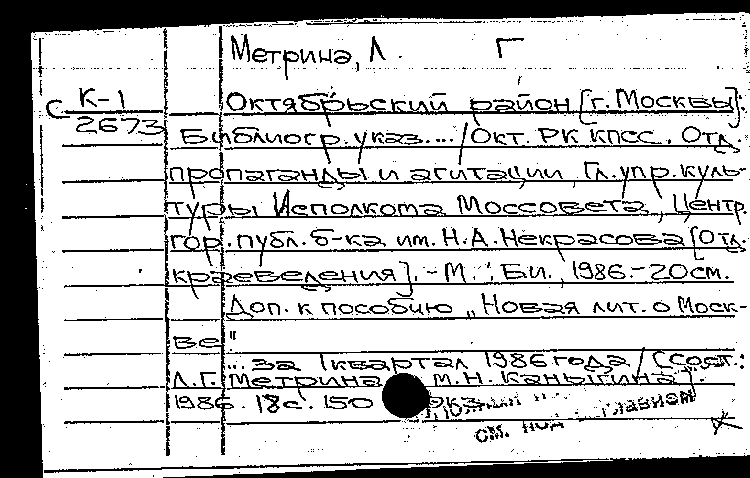 Метрина, Л. Г
С К-1
2673
Октябрьский район [г. Москвы]:
Библиогр. указ... / Окт. РК КПСС. Отд.
пропаганды и агитации, Гл. упр. куль-
туры Исполкома Моссовета, Центр.
гор. публ. б-ка им. Н.А. Некрасова [Отд.
краеведения]. - М.: Б.и., 1986.- 20 см.
Доп. к пособию „Новая лит. о Моск-
ве"
... за I квартал 1986 года / [Сост.:
Л.Г. Метрина М.Н. Каныгина].
1986. 18 с. 150 экз.
см. под главием